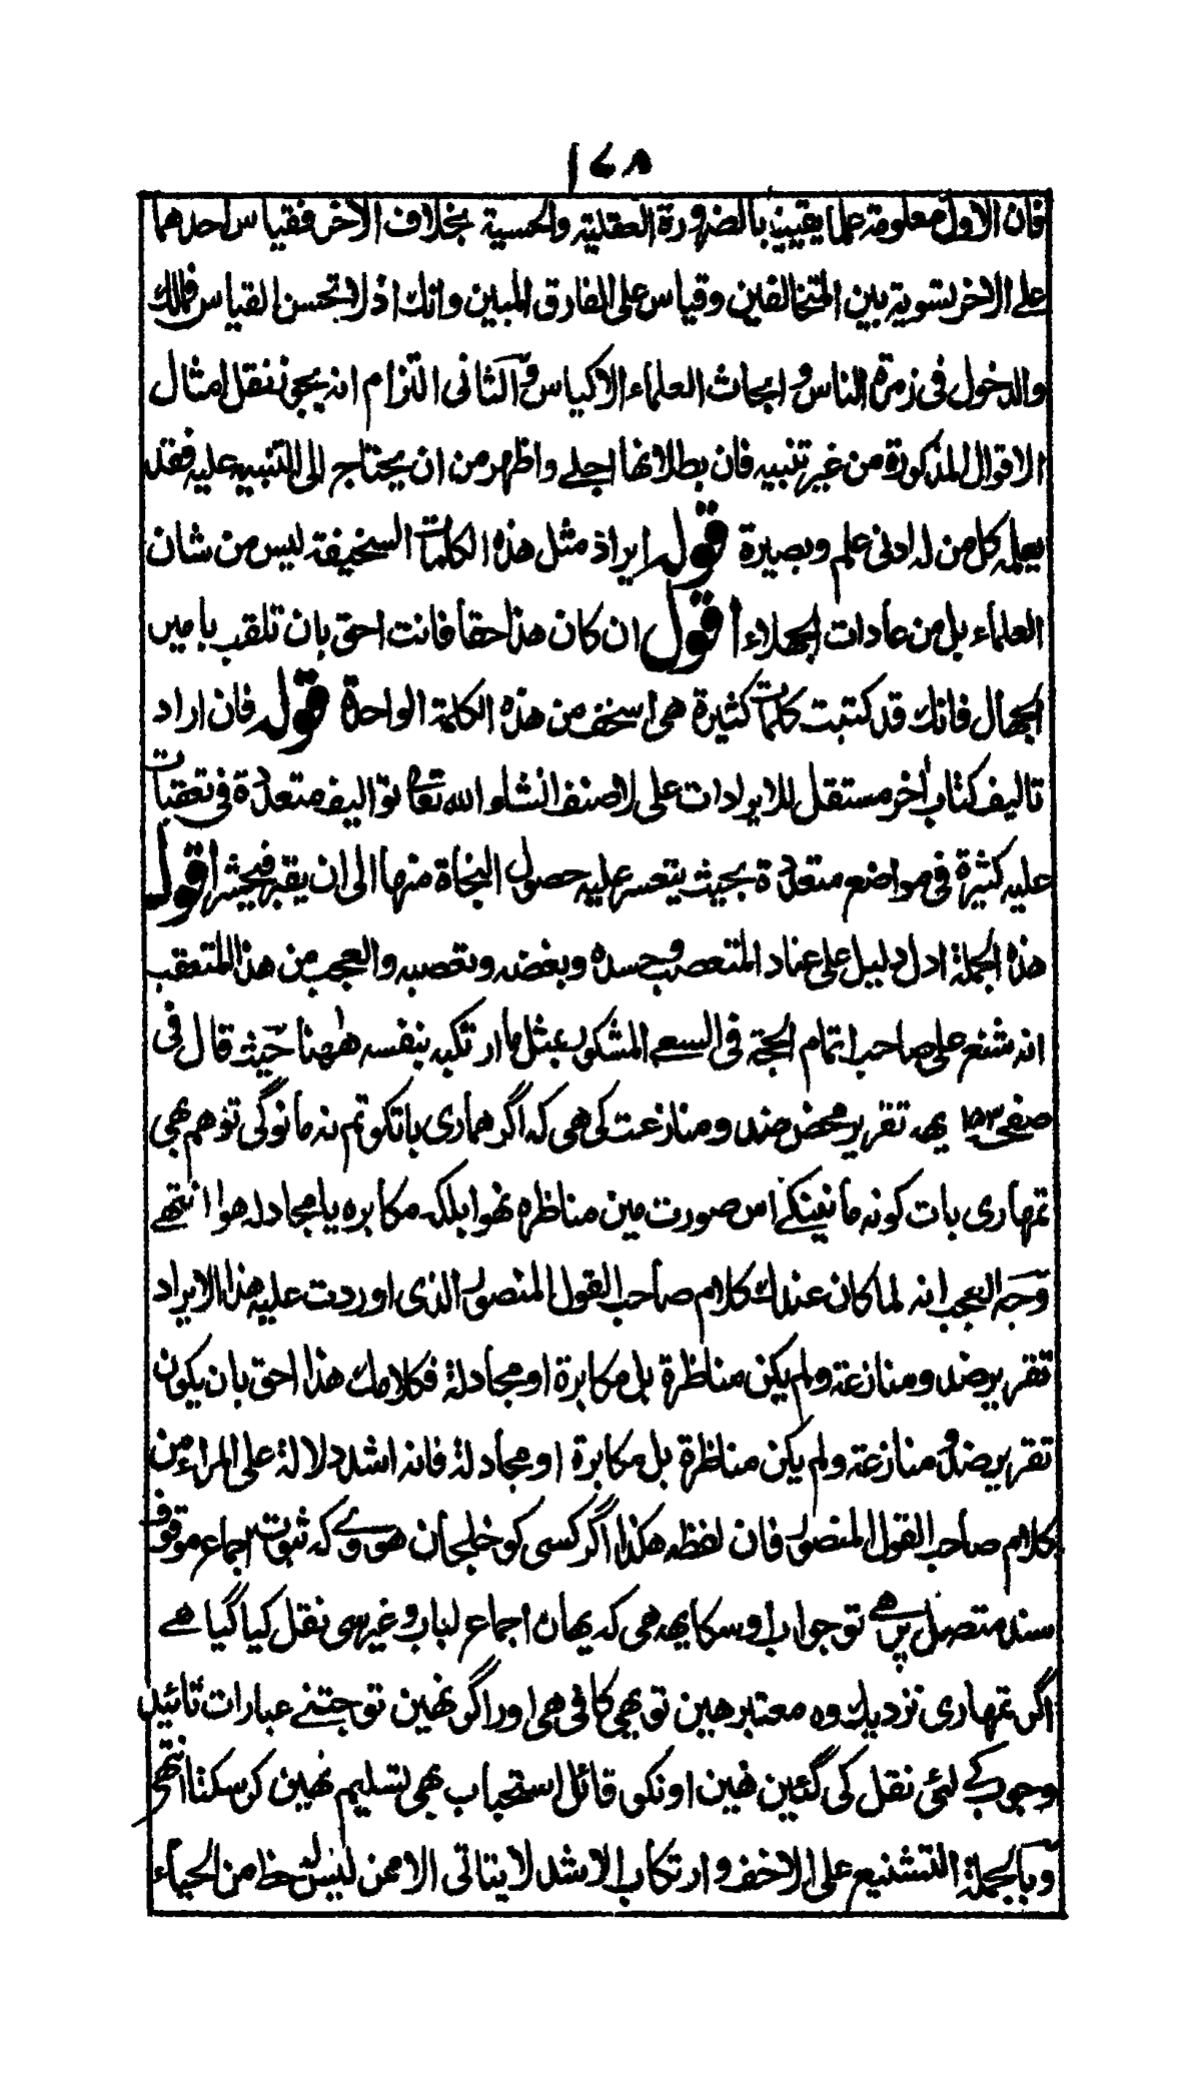 ١٧٨
فان الاول معلومة علما يقينيا بالضرورة العقلية والحسية بخلاف الآخر فقياس احدهما
على الآخر تسوية بين المتخالفين وقياس على الفارق المبين وانك اذ لا تحسن القياس فمالك
والدخول فى زمرة الناس وابحاث العلماء الاكياس والثانى التزام انه يجوز نقل امثال
الاقوال المذكورة من غير تنبيه فان بطلانها اجلے واظهر من ان يحتاج الى التنبيه عليه فقد
يعلمه كل من له ادنى علم وبصيرة قوله ايراد مثل هذه الكلمات السخيفة ليس من شان
العلماء بل من عادات الجهلاء اقول ان كان هذا حقا فانت احق بان تلقب بامير
الجهال فانك قد كتبت كلمات كثيرة هى اسخف من هذه الكلمة الواحدة قوله فان اراد
تاليف كتاب آخر مستقل للايرادات على لاصنف انشاء الله تعالى تواليف متعددة فى تعقبات
عليه كثيرة فى مواضع متعددة بحيث يتعسر عليه حصول النجاة منها الى ان يقبر فيحشر اقول
هذه الجملة ادل دليل على عناد المتعصب وحسده وبغضه وتعصبه والعجب من هذا المتعقب
انه شنع على صاحب اتمام الحجة فى السعے المشكور بمثل ما ارتكبه بنفسه ههنا حيث قال فى
صفحه ١٥٣ يهه تقرير محض ضد ومنازعت كى هى كه اگر همارى باتكو تم نه مانوگى تو هم بهى
تمهارى بات كو نه مانينگے اس صورت مين مناظره نهوا بلكه مكابره يا مجادله هوا انتهے
وجه العجب انه لما كان عندك كلام صاحب القول المنصور الذى اوردت عليه هذا الايراد
تقرير ضد ومنازعة ولم يكن مناظرة بل مكابرة او مجادلة فكلامك هذا احق بان يكون
تقرير ضد ومنازعة ولم يكن مناظرة بل مكابرة او مجادلة فانه اشد دلالة على المراء من
كلام صاحب القول المنصور فان لفظه هكذا اگر كسى كو خلجان هووے كه ثبوت اجماع موقوف
سند متصل پر هے تو جواب اوسكا يهه هى كه يهان اجماع لباب وغيره سى نقل كيا گيا هے
اگر تمهارى نزديك وه معتبر هين تو بهى كافى هى اور اگر نهين تو جتنے عبارات تائيد
وجوب كے لئى نقل كى گئين هين اونكو قائل استحباب بهى تسليم نهين كر سكتا انتهى
وبالجملة التشنيع على الاخف وارتكاب الاشد لا يتاتى الا ممن ليس له حظ من الحياء